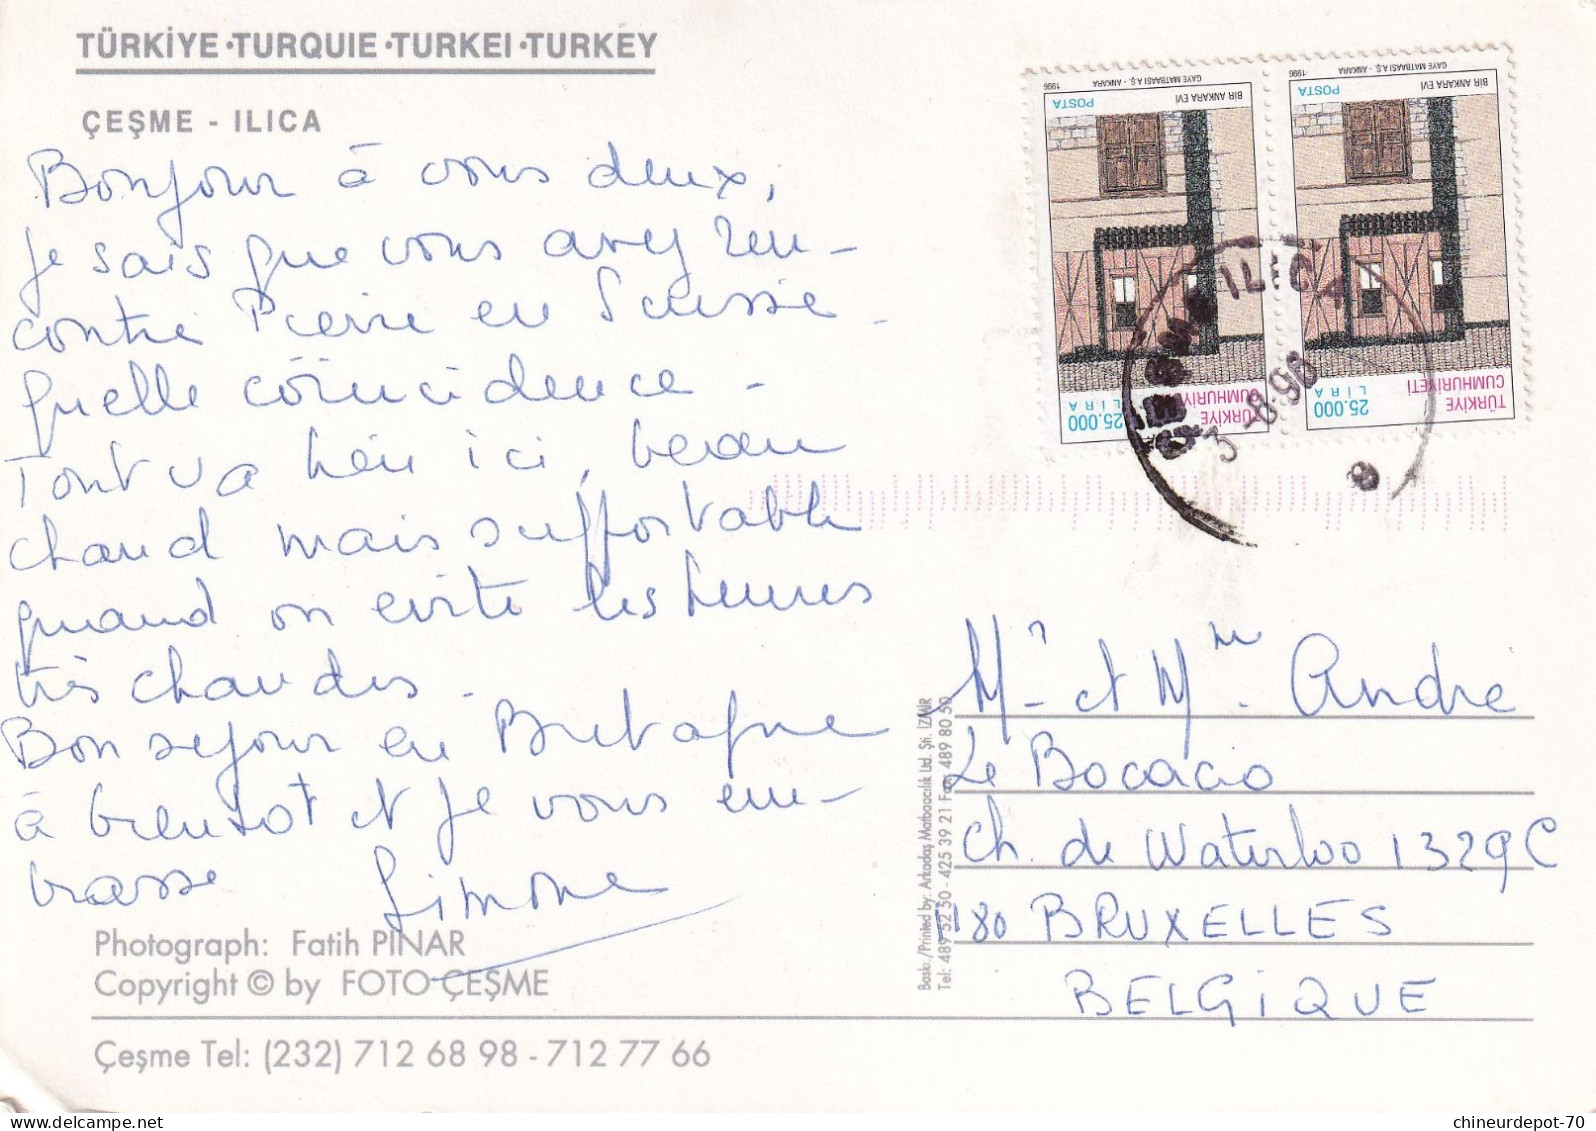 TÜRKİYE • TURQUIE • TURKEI • TURKEY
ÇEŞME - ILICA
Bonjour à vous deux,
je sais que vous avez ren-
contré Pierre en Suisse -
quelle coïncidence -
Tout va bien ici, beau
chaud mais suffortable
quand on évite les heures
très chaudes.
Bon séjour en Bretagne
à bientôt et je vous em-
brasse Simone
Photograph: Fatih PINAR
Copyright © by FOTO-ÇEŞME
Çeşme Tel: (232) 712 68 98 - 712 77 66
Baskı:/Printed by: Arkadaş Matbaacılık Ltd. Şti. İZMİR
Tel: 489 52 50 - 425 39 21 Fax: 489 80 50
GAYE MATBAASI A.Ş. - ANKARA 1996
BİR ANKARA EVİ
POSTA
25.000
LİRA
TÜRKİYE
CUMHURİYETİ
GAYE MATBAASI A.Ş. - ANKARA 1996
BİR ANKARA EVİ
POSTA
25.000
LİRA
TÜRKİYE
CUMHURİYETİ
ILICA
3-8-96
Mr et Mme André
Le Bocacio
Ch. de Waterloo 1329C
1180 BRUXELLES
BELGIQUE
chineurdepot-70